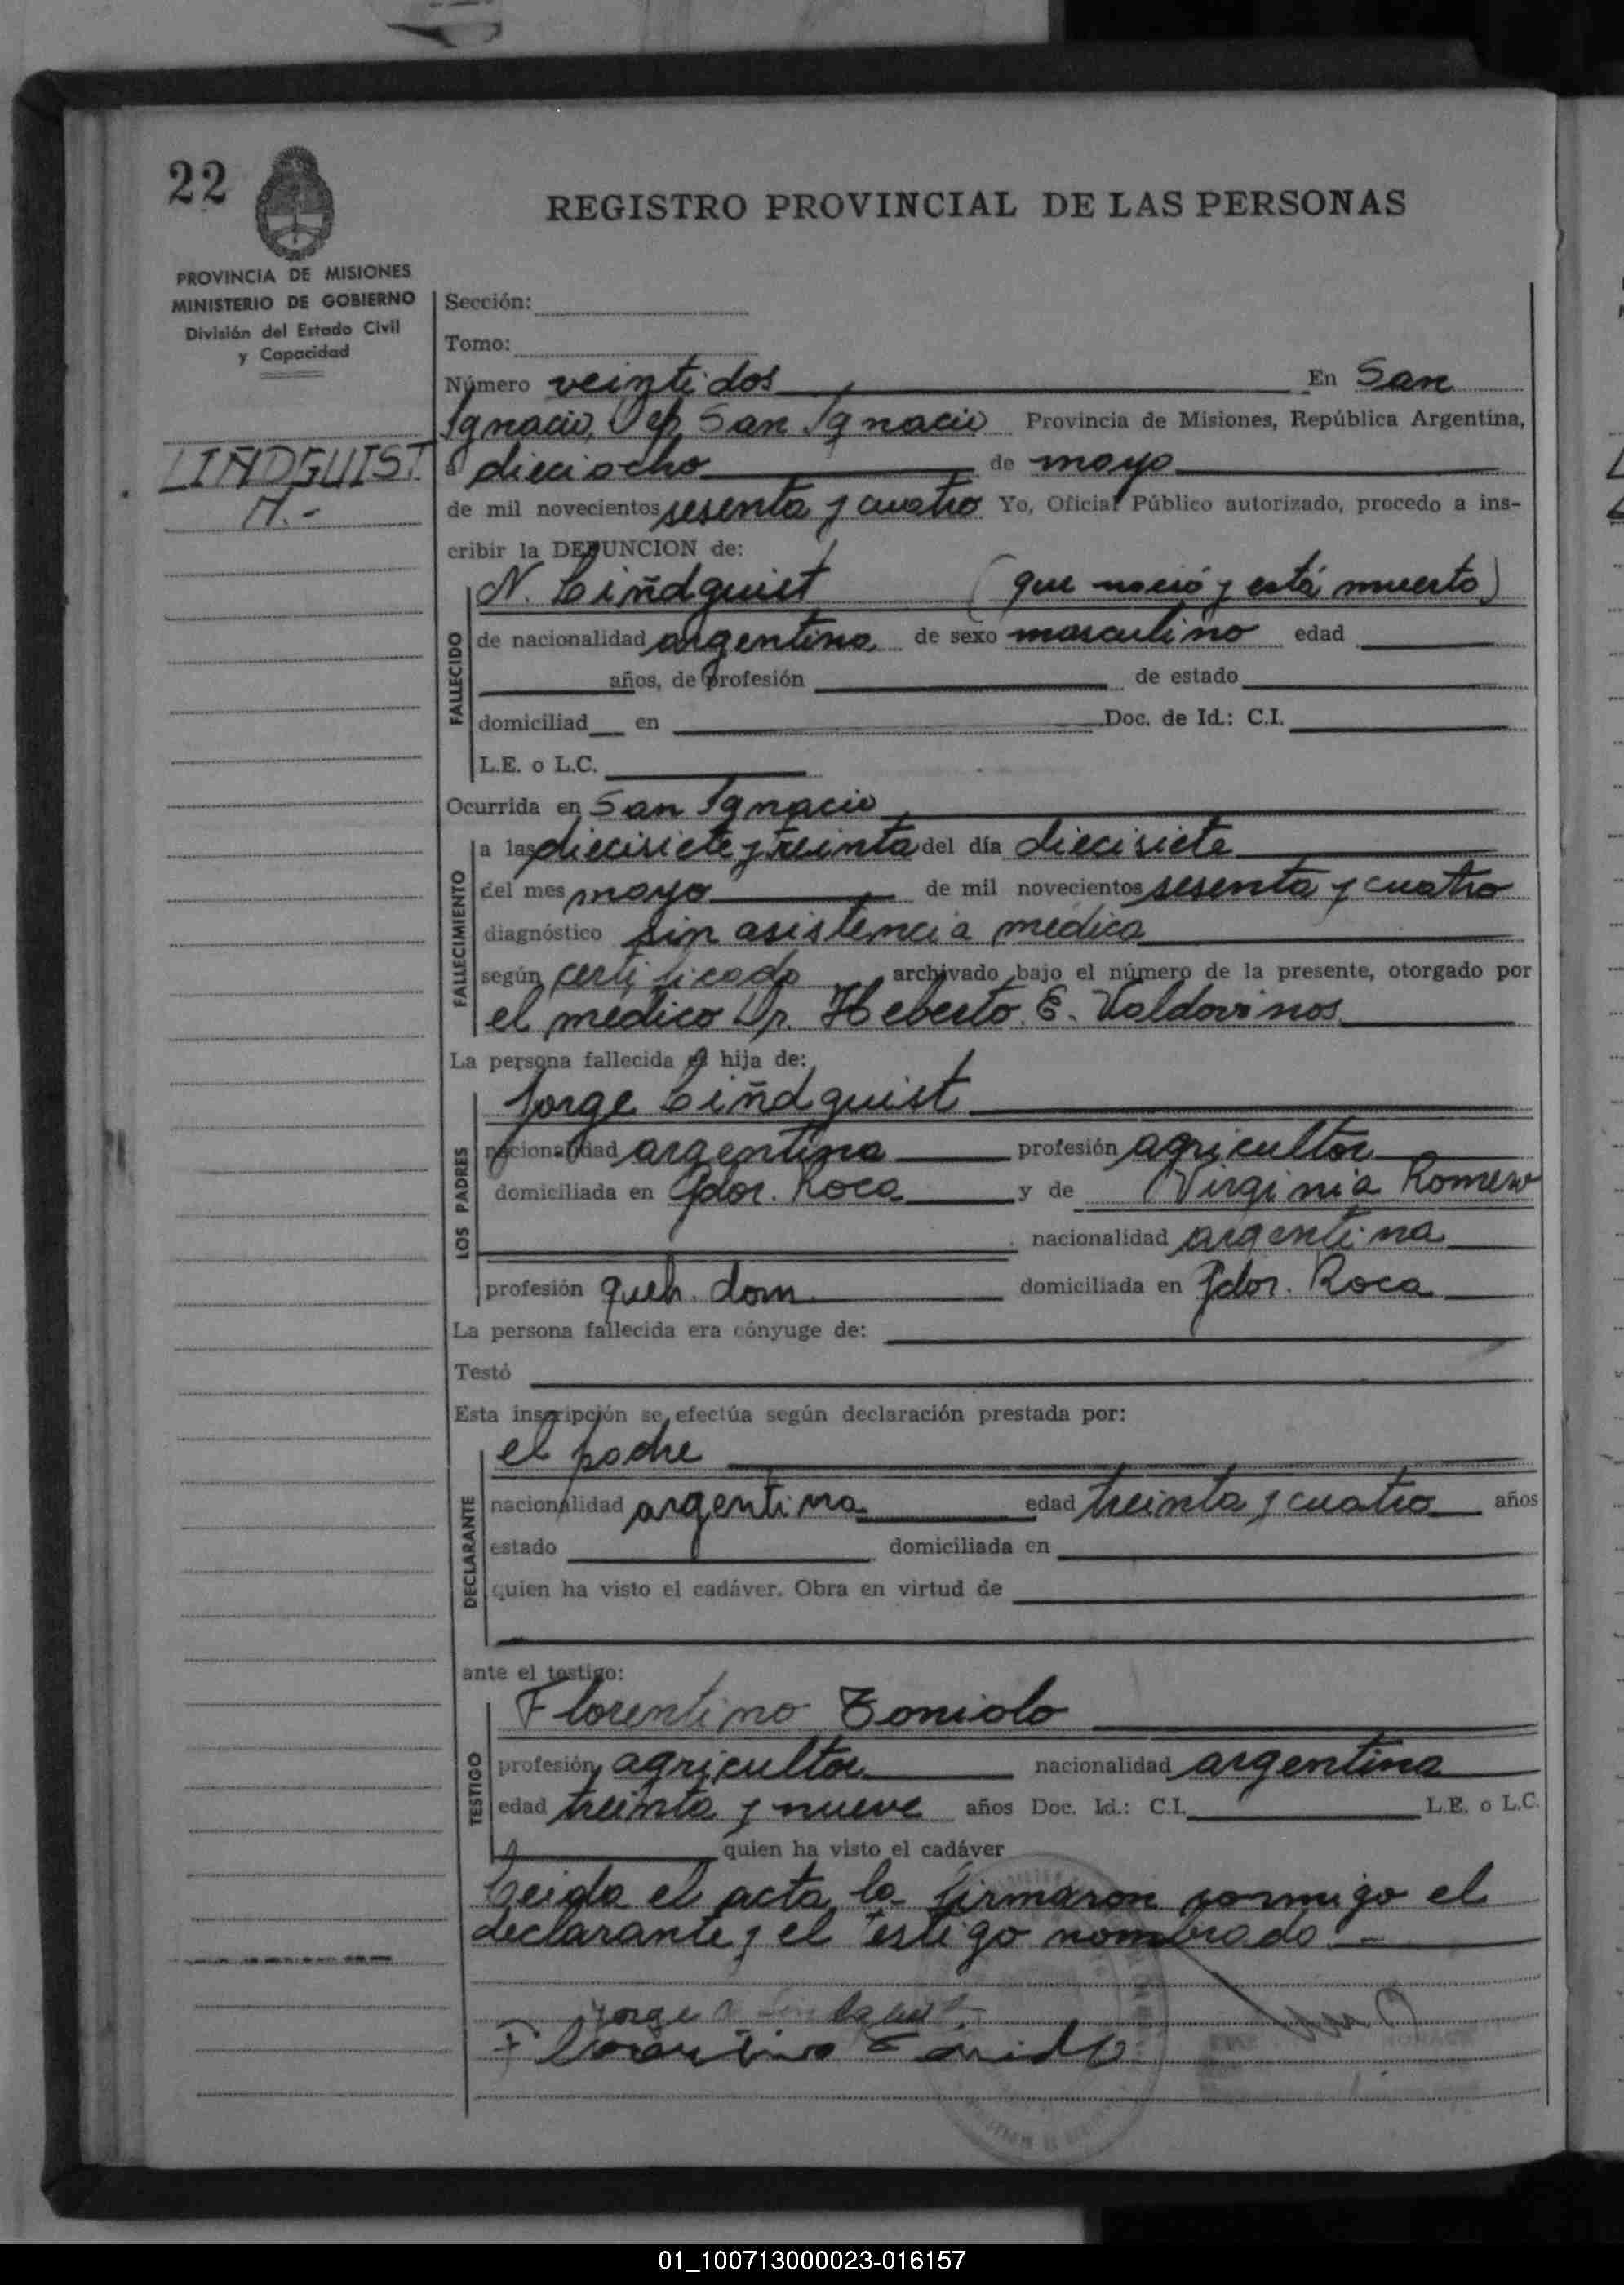 22
REGISTRO PROVINCIAL DE LAS PERSONAS
PROVINCIA DE MISIONES
MINISTERIO DE GOBIERNO
División del Estado Civil
y Capacidad
LIÑDGUIST
N.-
Sección:
Tomo:
Número veinti dos En San
Ignacio, Dep San Ignacio Provincia de Misiones, República Argentina,
a dieciocho de mayo
de mil novecientos sesenta y cuatro Yo, Oficial Público autorizado, procedo a ins-
cribir la DEFUNCION de:
FALLECIDO
N. Liñdguist (que nació y está muerto)
de nacionalidad argentina de sexo masculino edad
años, de profesión de estado
domiciliad en Doc. de Id.: C.I.
L.E. o L.C.
Ocurrida en San Ignacio
FALLECIMIENTO
a las diecisiete y treinta del día diecisiete
del mes mayo de mil novecientos sesenta y cuatro
diagnóstico sin asistencia médica
según certificado archivado bajo el número de la presente, otorgado por
el medico Dr. Heberto. E. Valdovinos
La persona fallecida es hija de:
LOS PADRES
Jorge Liñdguist
nacionalidad argentina profesión agricultor
domiciliada en Gdor. Roca y de Virginia Romero
nacionalidad argentina
profesión queh. dom. domiciliada en Gdor. Roca
La persona fallecida era cónyuge de:
Testó
Esta inscripción se efectúa según declaración prestada por:
DECLARANTE
el padre
nacionalidad argentina edad treinta y cuatro años
estado domiciliada en
quien ha visto el cadáver. Obra en virtud de
ante el testigo:
TESTIGO
Florentino Toniolo
profesión agricultor nacionalidad argentina
edad treinta y nueve años Doc. Id.: C.I. L.E. o L.C.
quien ha visto el cadáver
Leida el acta la firmaron conmigo el
declarante y el testigo nombrado.-
Jorge
Florentino Toniolo
01_100713000023-016157